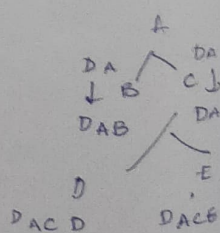 A
DA DA
↓ B C ↓
DAB DA
D E
DACD DACE